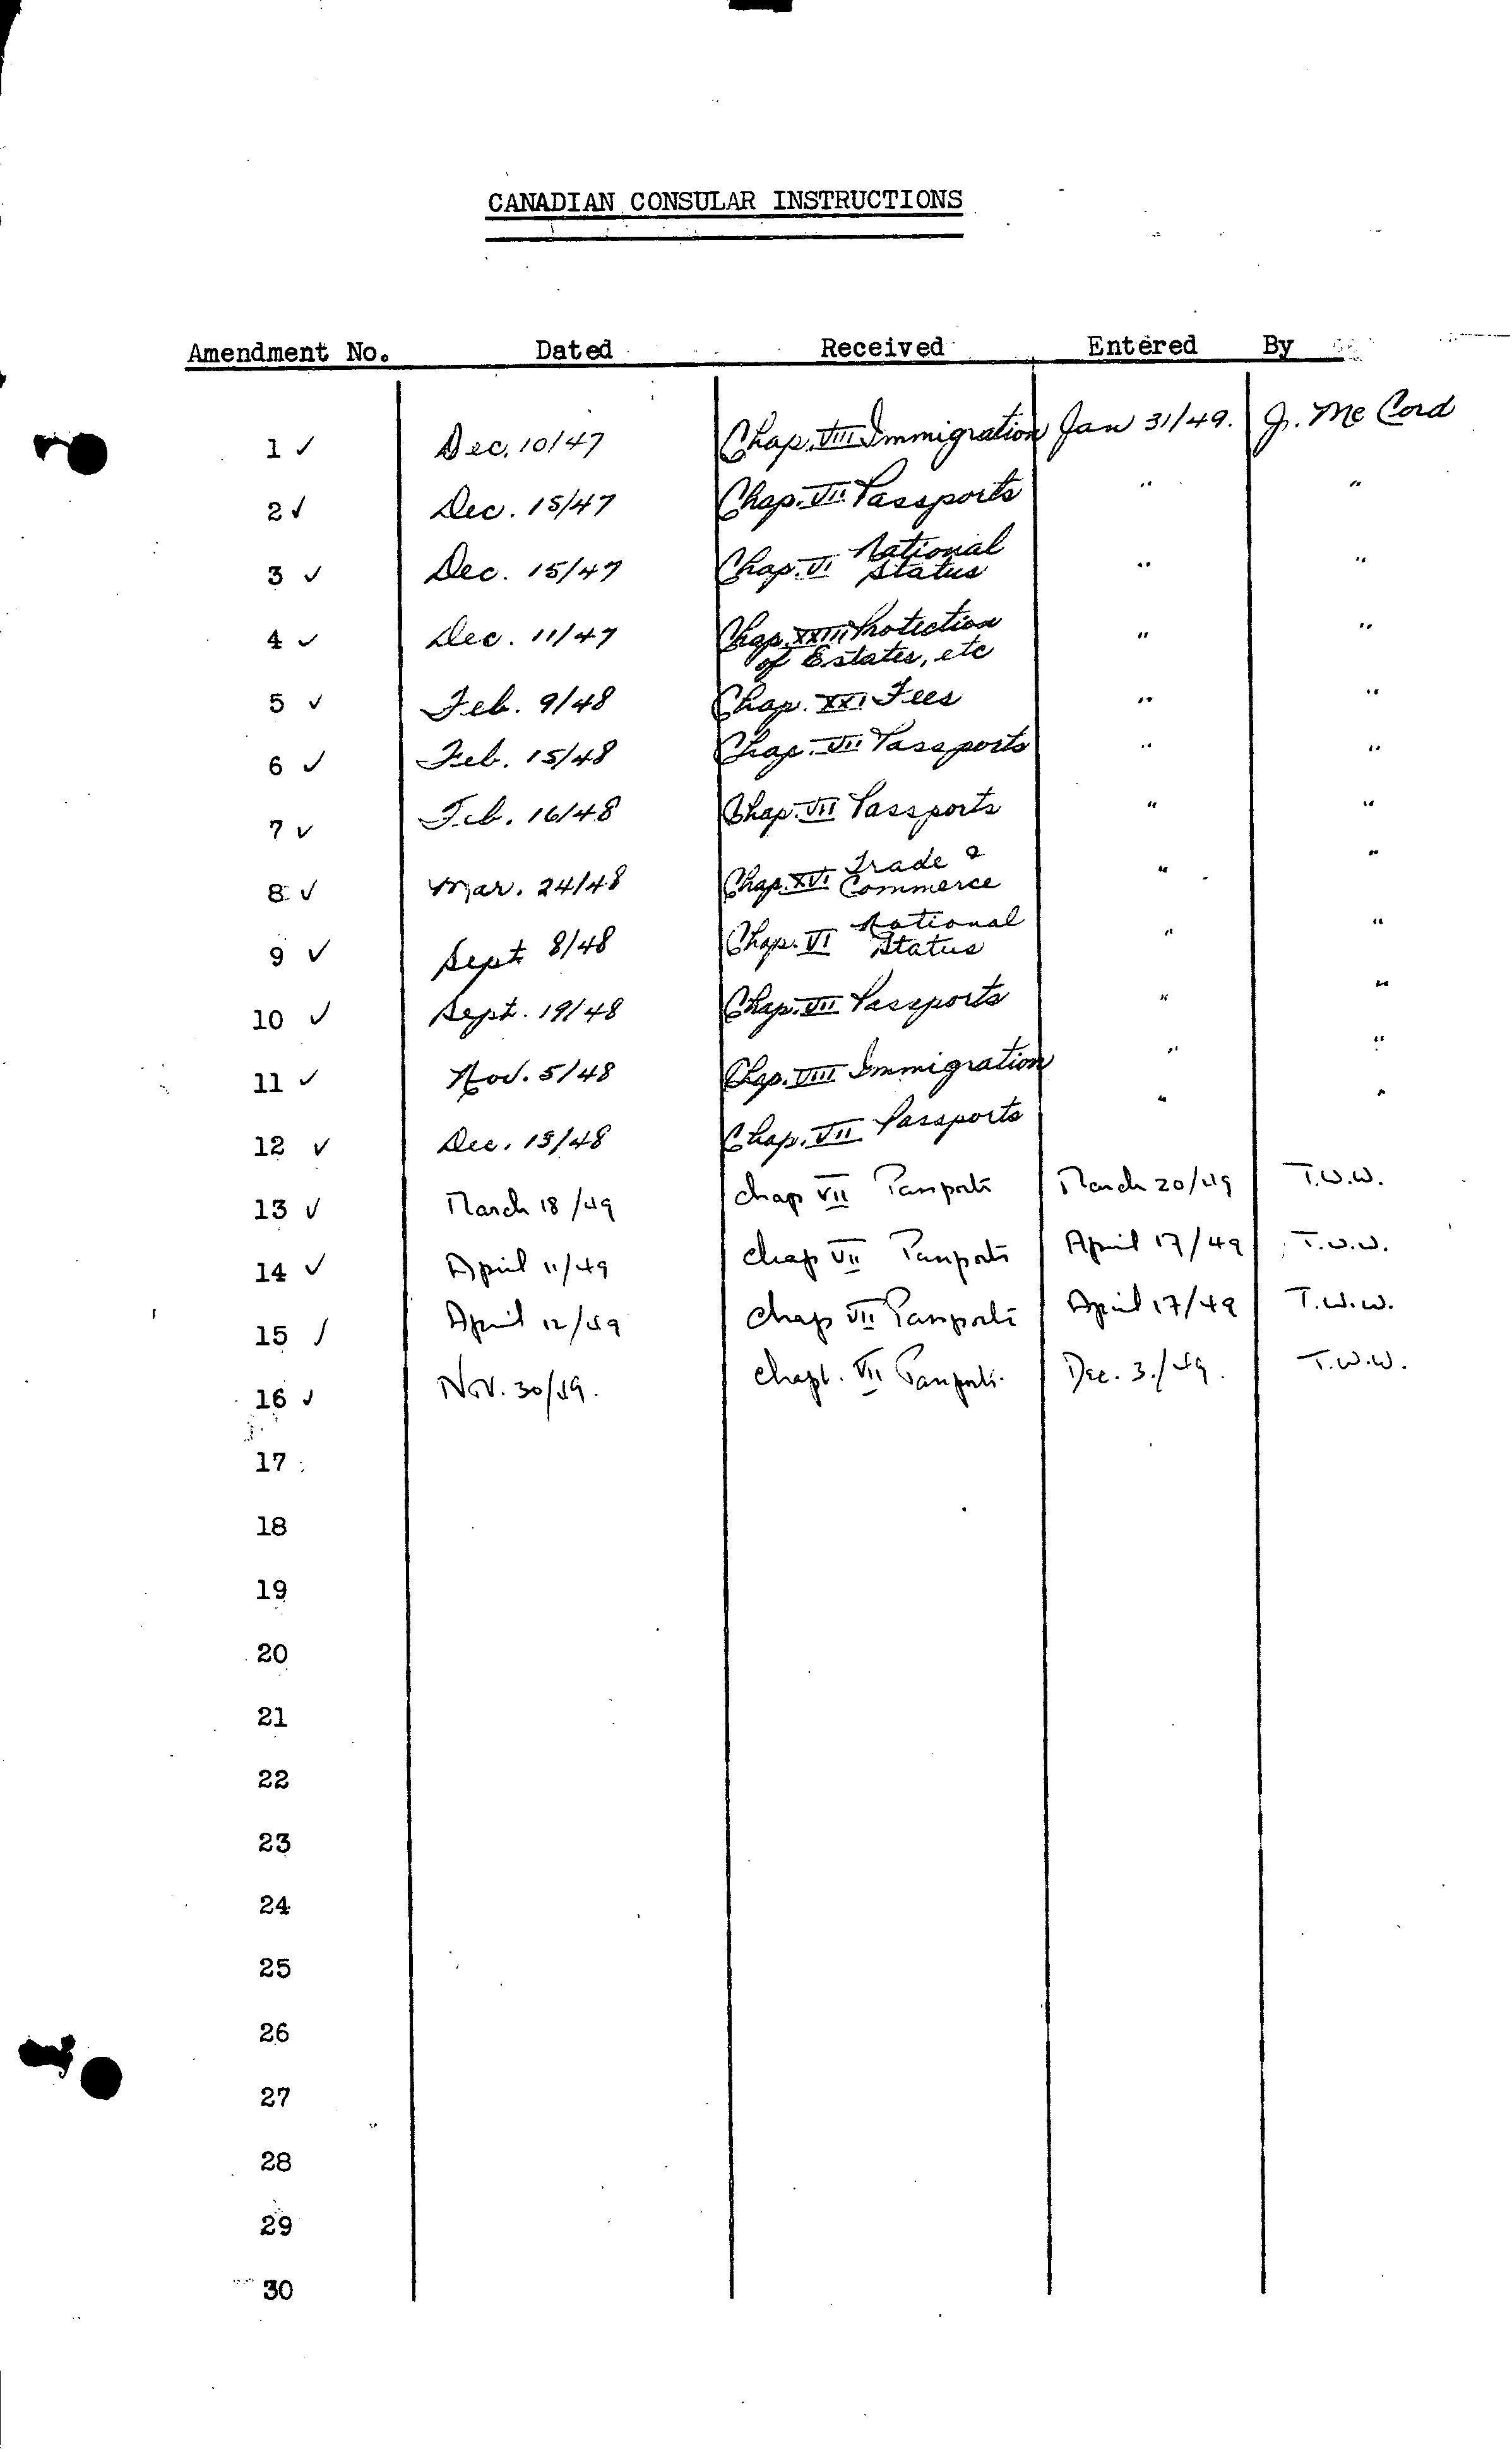 CANADIAN CONSULAR INSTRUCTIONS
Amendment No. Dated Received Entered By
1 ✓ Dec. 10/47 Chap. VIII Immigration Jan 31/49. J. Mc Cord
2 ✓ Dec. 15/47 Chap. VII Passports " "
3 ✓ Dec. 15/47 Chap. VI National Status " "
4 ✓ Dec. 11/47 Chap. XXIII Protection
of Estates, etc " "
5 ✓ Feb. 9/48 Chap. XXI Fees " "
6 ✓ Feb. 15/48 Chap. VII Passports " "
7 ✓ Feb. 16/48 Chap. VII Passports " "
8 ✓ Mar. 24/48 Chap. XVI Trade & Commerce " "
9 ✓ Sept 8/48 Chap. VI National Status " "
10 ✓ Sept. 19/48 Chap. VII Passports " "
11 ✓ Nov. 5/48 Chap. VIII Immigration " "
12 ✓ Dec. /48 Chap. VII Passports " "
13 ✓ March 18/49 Chap VII Passports March 20/49 T.W.W.
14 ✓ April 11/49 Chap VII Passports April 17/49 T.W.W.
15 ✓ April 12/49 Chap VII Passports April 17/49 T.W.W.
16 ✓ Nov. 30/49. Chapt. VII Passports. Dec. 3./49. T.W.W.
17
18
19
20
21
22
23
24
25
26
27
28
29
30